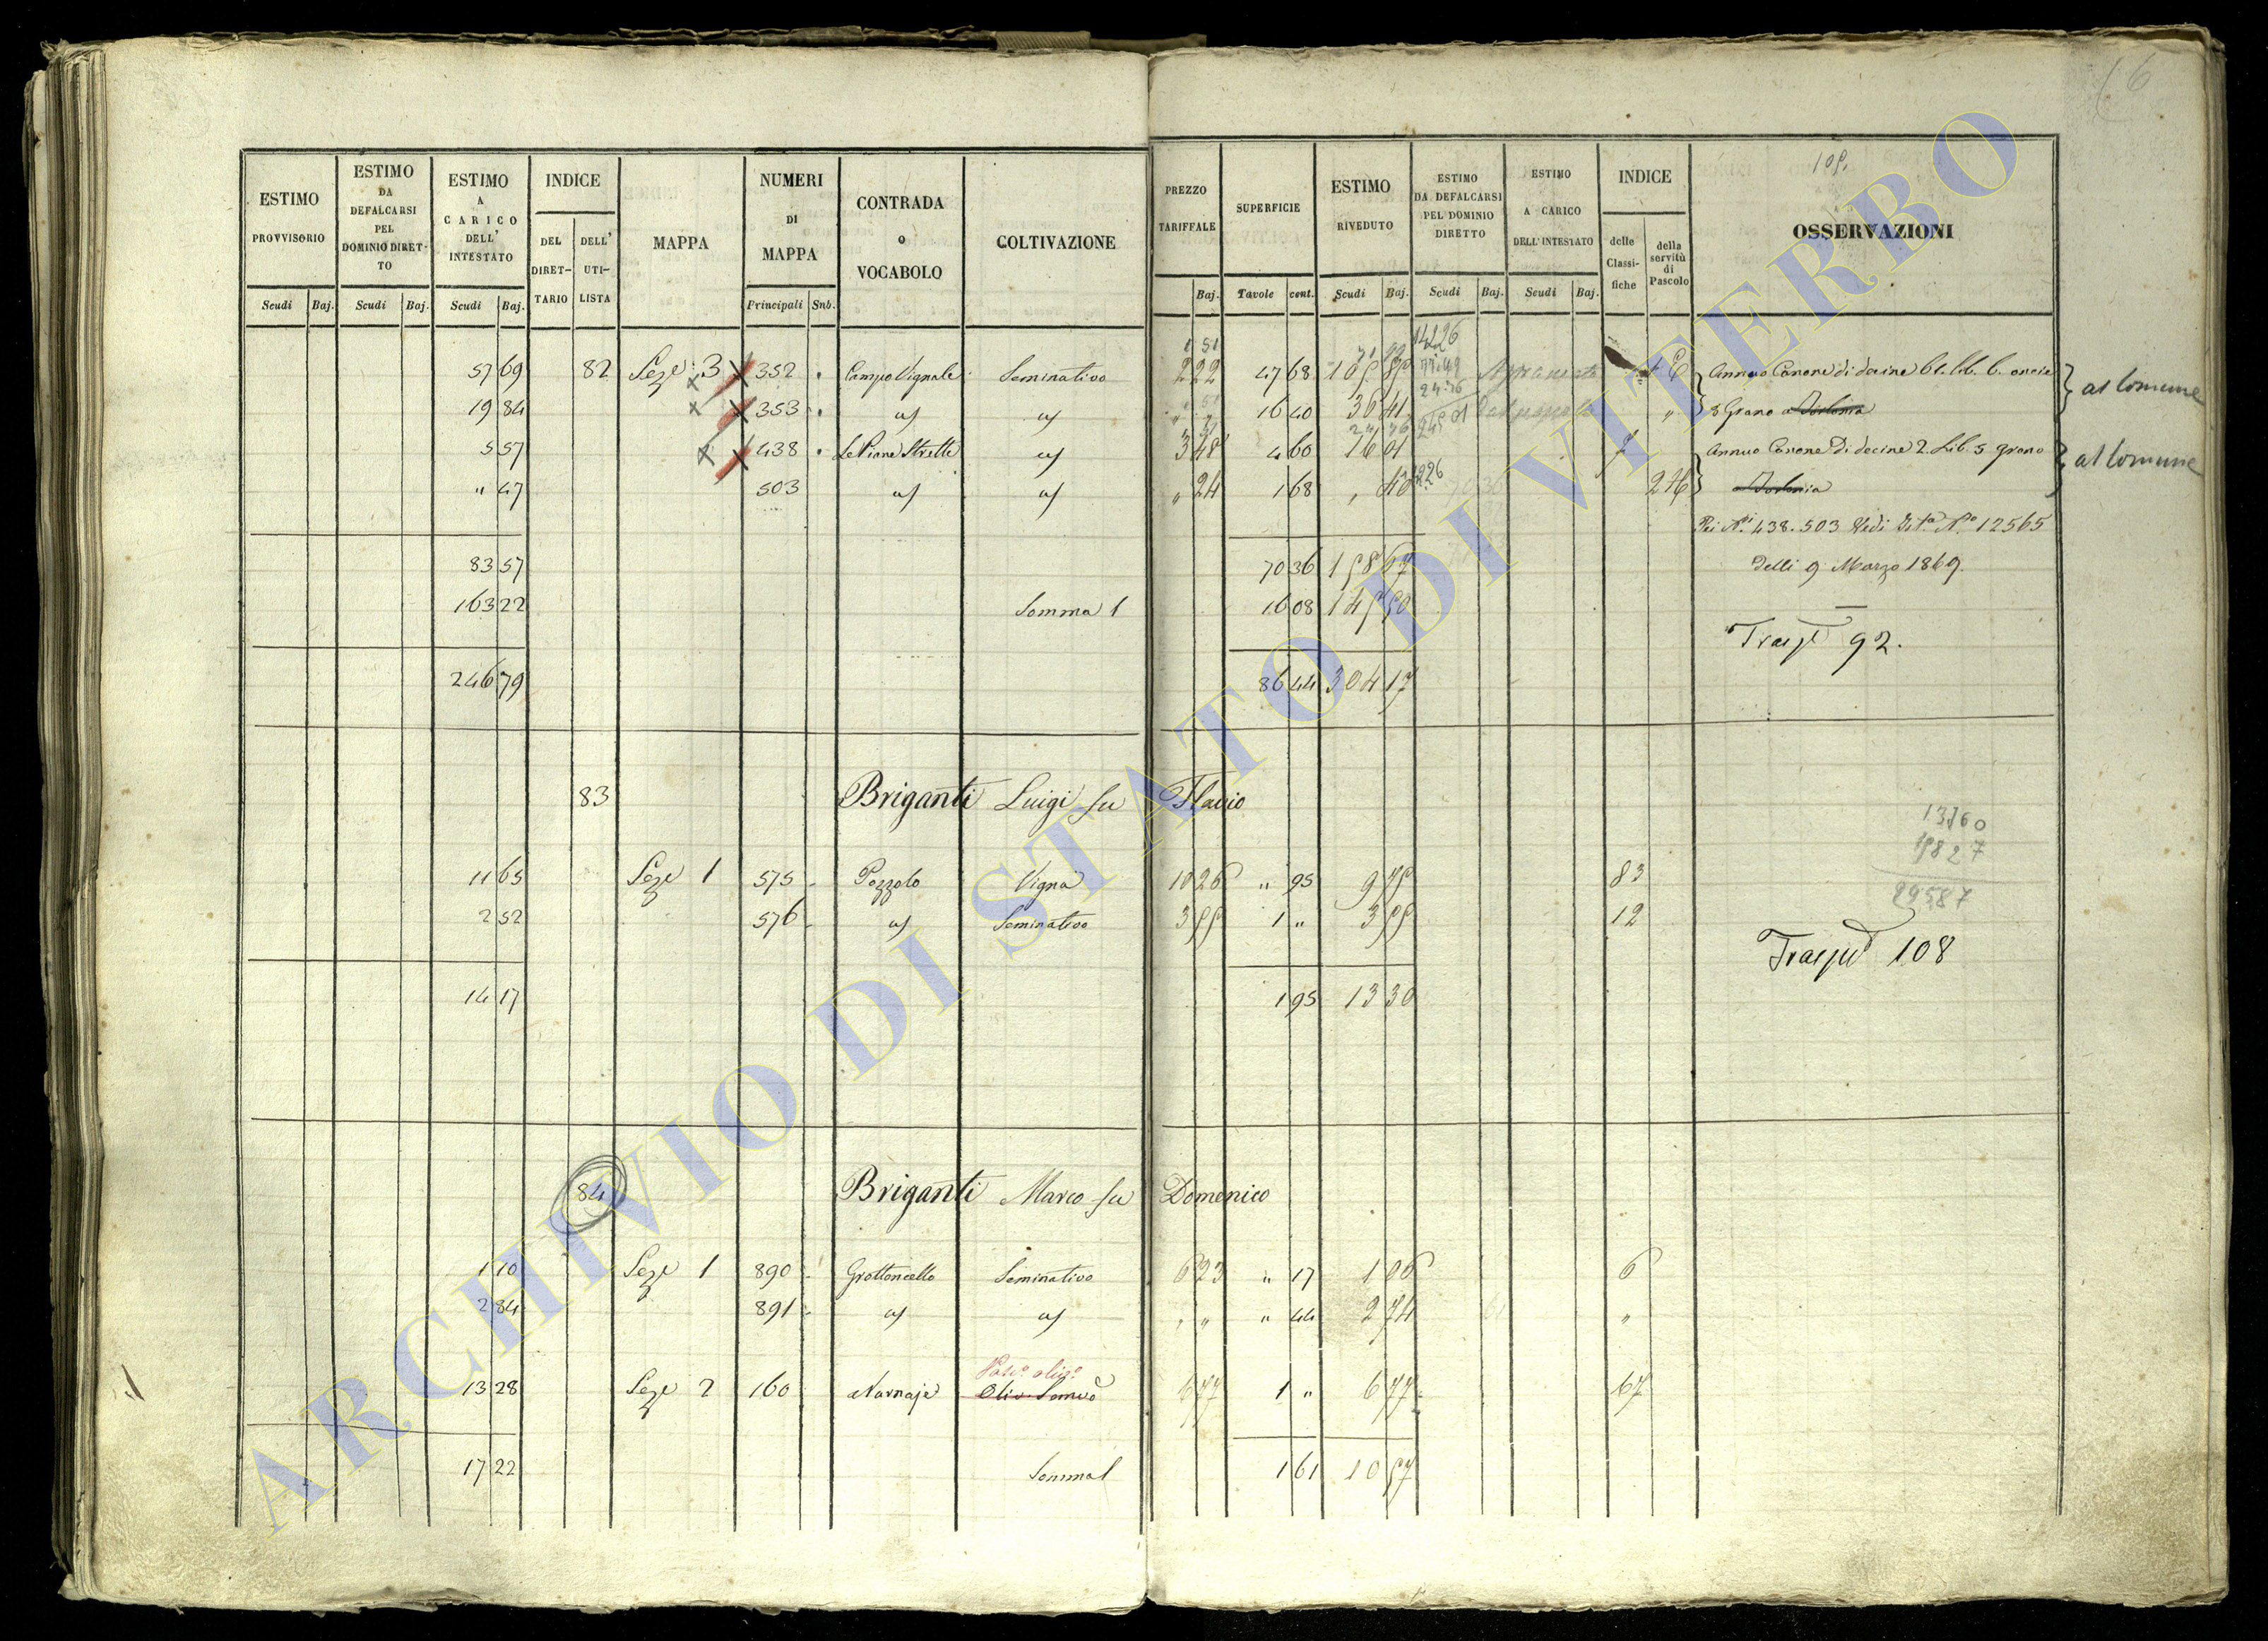 6
109.
ESTIMO PROVVISORIO
ESTIMO DA DEFALCARSI PEL DOMINIO DIRET-TO
ESTIMO A CARICO DELL' INTESTATO
INDICE
DEL DIRET-TARIO
DELL' UTI-LISTA
MAPPA
NUMERI DI MAPPA
CONTRADA o VOCABOLO
COLTIVAZIONE
PREZZO TARIFFALE
SUPERFICIE
ESTIMO RIVEDUTO
ESTIMO DA DEFALCARSI PEL DOMINIO DIRETTO
ESTIMO A CARICO DELL' INTESTATO
INDICE
delle Classi-fiche
della servitù di Pascolo
OSSERVAZIONI
Scudi Baj. Scudi Baj. Scudi Baj. Principali Sub. Baj. Tavole cent. Scudi Baj. Scudi Baj. Scudi Baj.
57 69 82 Seze 3 352 Campo Vignale Seminativo 2 22 47 68 Annuo Canone di decine 61. lib. 6. oncie
19 84 353 " " 16 40 36 41 " 8 Grano a al Comune
5 57 438 Le Piane Strette 3 48 4 60 16 01 7 Annuo Canone di decine 2. Lib. 5 grano
" 47 503 " 24 1 68 " 40 2 al Comune
Pei Ni. 438. 503 Vedi No. 12565
83 57 70 36 158 67 delli 9 Marzo 1869.
163 22 Somma 1 16 08 145 50
Trasp 92.
246 79 86 44 304 17
83 Briganti Luigi fu Flavio
13760
15827
29587
11 65 Seze 1 575 Pozzolo Vigna 10 26 " 95 9 75 83
2 52 576 Seminativo 3 55 1 " 3 55 12
Trasp 108
14 17 1 95 13 30
84 Briganti Marco fu Domenico
1 10 Seze 1 890 Grottoncello Seminativo 6 23 " 17 1 06 6
2 84 891 " " " 44 2 74 "
Pasc. oliv.
13 28 Seze 2 160 Narnaje Oliv. Semivo 6 77 1 " 6 77 67
17 22 Somma 1 1 61 10 57
ARCHIVIO DI STATO DI VITERBO